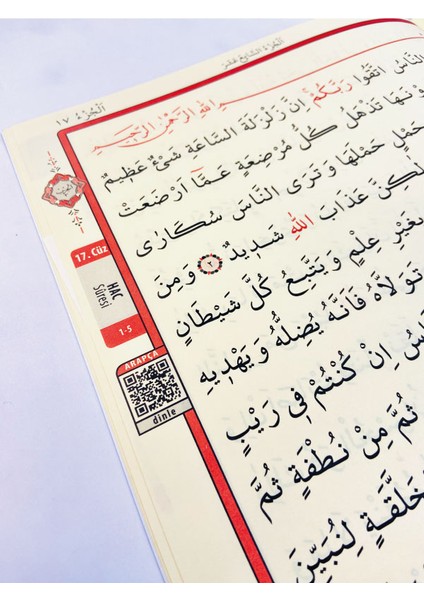 اَلْجُزْءُ السَّابِعَ عَشَرَ
اَلْجُزْءُ ١٧
اللّٰهِ الرَّحْمٰنِ الرَّحِيمِ
النَّاسُ اتَّقُوا رَبَّكُمْ اِنَّ زَلْزَلَةَ السَّاعَةِ شَيْءٌ عَظِيمٌ
تَذْهَلُ كُلُّ مُرْضِعَةٍ عَمَّٓا اَرْضَعَتْ
حَمْلٍ حَمْلَهَا وَتَرَى النَّاسَ سُكَارٰى
لٰكِنَّ عَذَابَ اللّٰهِ شَدِيدٌ ٢ وَمِنَ
بِغَيْرِ عِلْمٍ وَيَتَّبِعُ كُلَّ شَيْطَانٍ
تَوَلَّاهُ فَاَنَّهُ يُضِلُّهُ وَيَهْدِيهِ
اِنْ كُنْتُمْ فِي رَيْبٍ
ثُمَّ مِنْ نُطْفَةٍ ثُمَّ
لِنُبَيِّنَ
17. Cüz
HAC
Sûresi
1-5
ARAPÇA
dinle